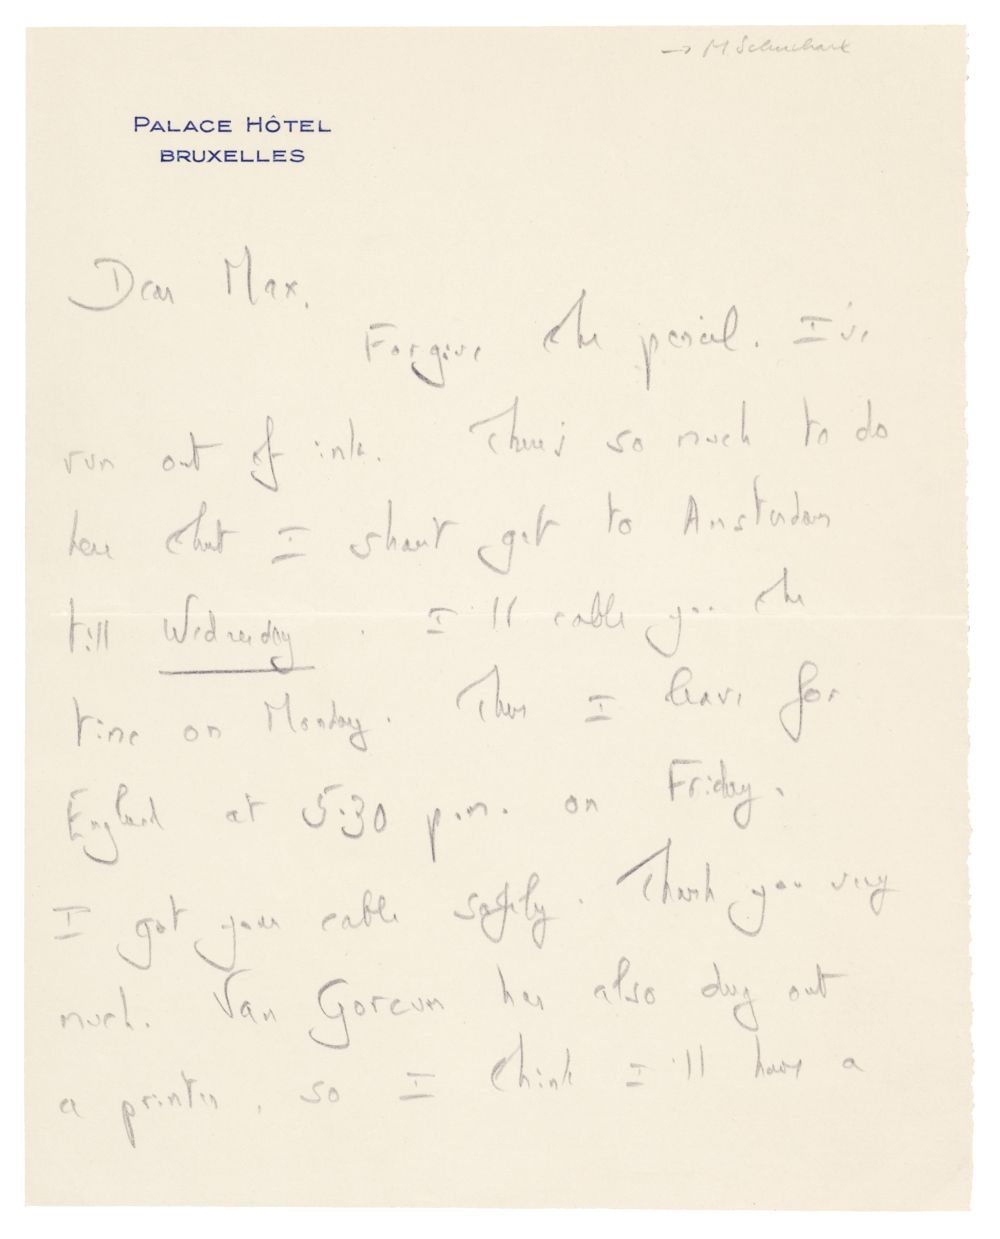 → M Schuchart
PALACE HÔTEL
BRUXELLES
Dear Max,
Forgive the pencil. I've
run out of ink. There's so much to do
here that I shan't get to Amsterdam
till Wednesday. I'll cable you the
time on Monday. Then I leave for
England at 5.30 p.m. on Friday.
I got your cable safely. Thank you very
much. Van Gorcum has also dug out
a printer, so I think I'll have a